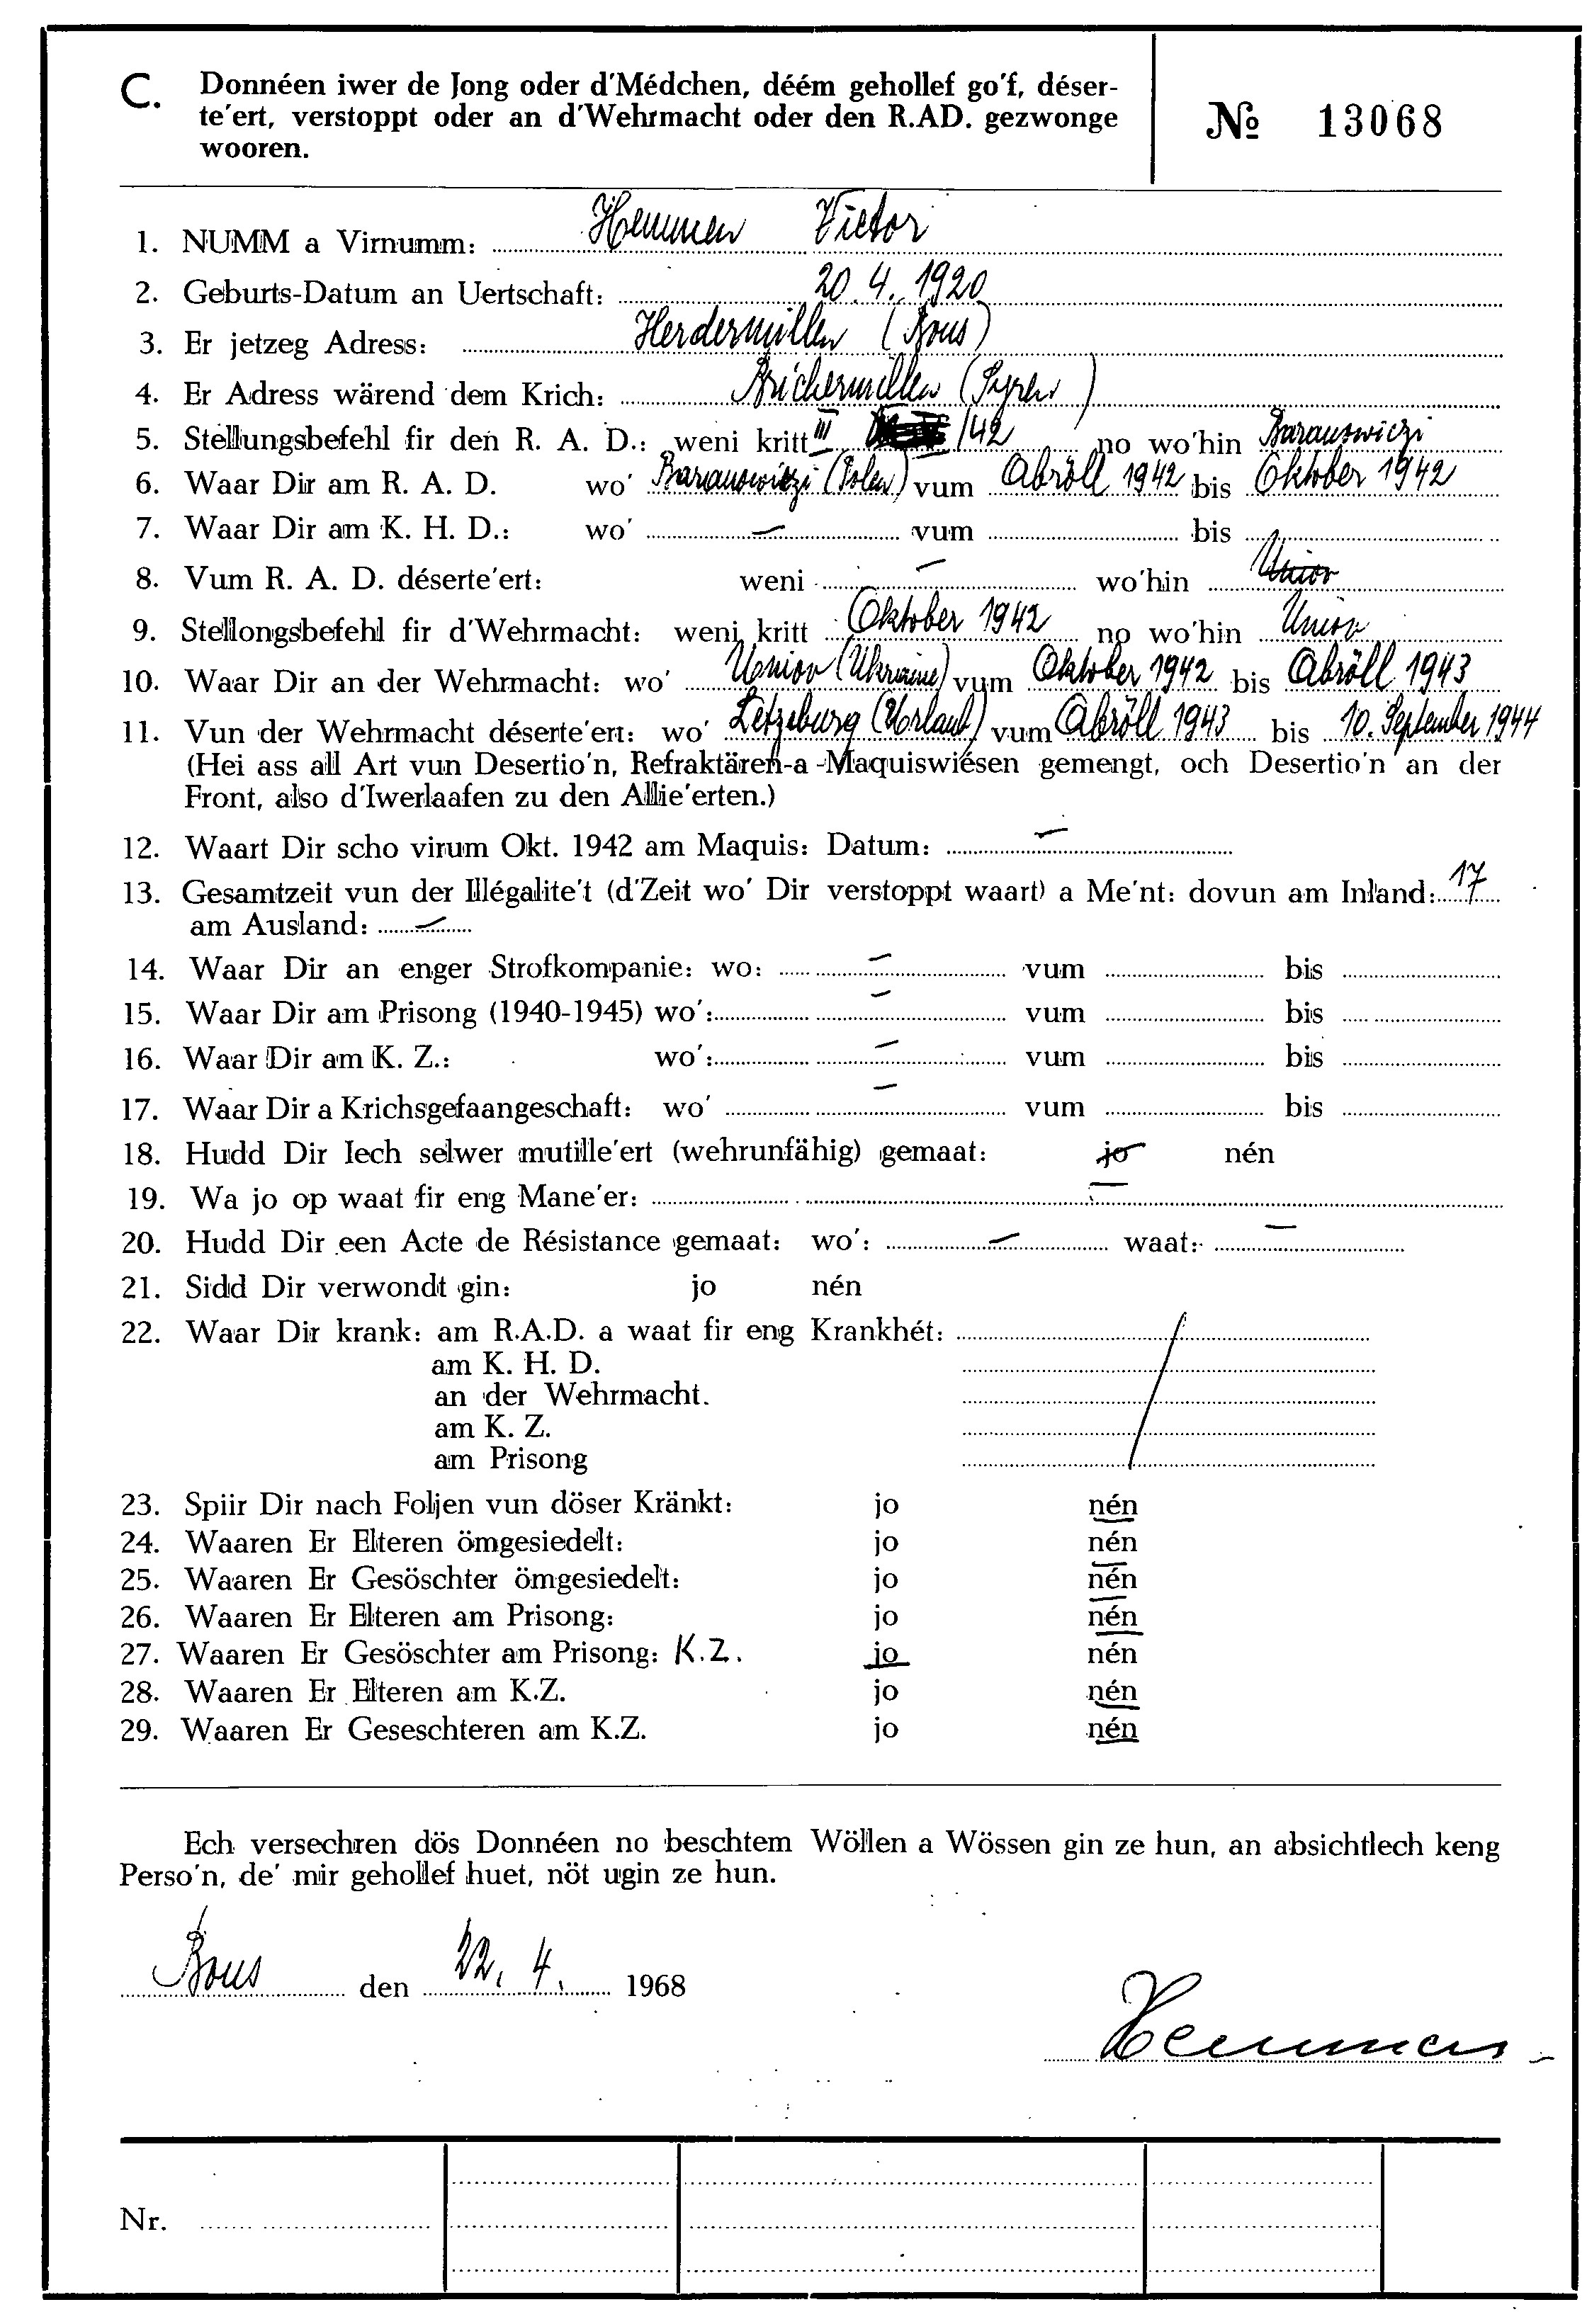 C. Donnéen iwer de Jong oder d'Médchen, déém gehollef go'f, déser-
te'ert, verstoppt oder an d'Wehrmacht oder den R.AD. gezwonge
wooren.
№ 13068
1. NUMM a Virnumm: Hemmen Victor
2. Geburts-Datum an Uertschaft: 20.4.1920
3. Er jetzeg Adress: Herdermillen (Bous)
4. Er Adress wärend dem Krich: Brichermillen (Syren)
5. Stellungsbefehl fir den R. A. D.: weni kritt III /42 no wo'hin Baranowiczi
6. Waar Dir am R. A. D. wo' Baranowiczi (Polen) vum Abröll 1942 bis Oktober 1942
7. Waar Dir am K. H. D.: wo' — vum bis
8. Vum R. A. D. déserte'ert: weni — wo'hin
9. Stellongsbefehl fir d'Wehrmacht: weni kritt Oktober 1942 no wo'hin Union
10. Waar Dir an der Wehrmacht: wo' Union (Ukraine) vum Oktober 1942 bis Abröll 1943
11. Vun der Wehrmacht déserte'ert: wo' Letzeburg (Urlaub) vum Abröll 1943 bis 10. September 1944
(Hei ass all Art vun Desertio'n, Refraktären-a-Maquiswiésen gemengt, och Desertio'n an der
Front, also d'Iwerlaafen zu den Allie'erten.)
12. Waart Dir scho virum Okt. 1942 am Maquis: Datum: —
13. Gesamtzeit vun der Illégalite't (d'Zeit wo' Dir verstoppt waart) a Me'nt: dovun am Inland: 17
am Ausland: —
14. Waar Dir an enger Strofkompanie: wo: — vum bis
15. Waar Dir am Prisong (1940-1945) wo': — vum bis
16. Waar Dir am K. Z.: wo': — vum bis
17. Waar Dir a Krichsgefaangeschaft: wo' — vum bis
18. Hudd Dir Iech selwer mutille'ert (wehrunfähig) gemaat: jo nén
19. Wa jo op waat fir eng Mane'er: —
20. Hudd Dir een Acte de Résistance gemaat: wo': — waat: —
21. Sidd Dir verwondt gin: jo nén
22. Waar Dir krank: am R.A.D. a waat fir eng Krankhét:
am K. H. D.
an der Wehrmacht.
am K. Z.
am Prisong
23. Spiir Dir nach Foljen vun döser Kränkt: jo nén
24. Waaren Er Elteren ömgesiedelt: jo nén
25. Waaren Er Gesöschter ömgesiedelt: jo nén
26. Waaren Er Elteren am Prisong: jo nén
27. Waaren Er Gesöschter am Prisong: K.Z. jo nén
28. Waaren Er Elteren am K.Z. jo nén
29. Waaren Er Geseschteren am K.Z. jo nén
Ech versechren dös Donnéen no beschtem Wöllen a Wössen gin ze hun, an absichtlech keng
Perso'n, de' mir gehollef huet, nöt ugin ze hun.
Bous den 22. 4. 1968
Hemmen
Nr.